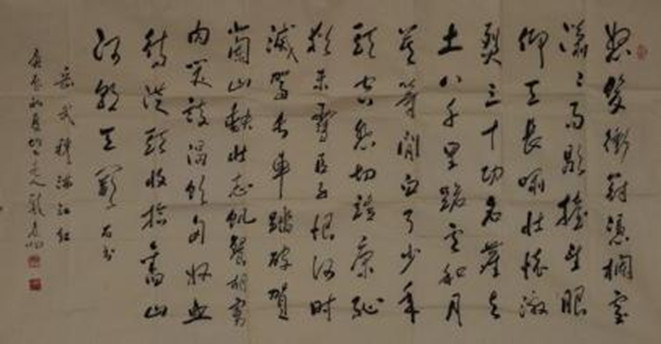 怒髮衝冠憑欄處
瀟〻雨歇擡望眼
仰天長嘯壯懷激
烈三十功名塵與
土八千里路雲和月
莫等閒白了少年
頭空悲切靖康恥
猶未雪臣子恨何時
滅駕長車踏破賀
蘭山缺壯志飢餐胡虜
肉笑談渴飲匈奴血
待從頭收拾舊山
河朝天闕 右書
岳武穆滿江紅